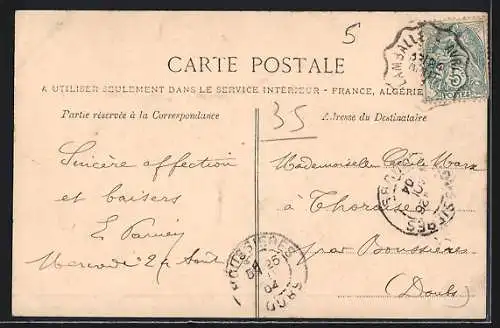 5
CARTE POSTALE
A UTILISER SEULEMENT DANS LE SERVICE INTÉRIEUR - FRANCE, ALGÉRIE
Partie réservée à la Correspondance
35
Adresse du Destinataire
LAMBALLE
Sincère affection
et baisers
E.
Mercredi 24 Août
Mademoiselle Cécile
à Thoraise
par Boussières
(Doubs)
BOUSSIERES
25
04
DOUBS